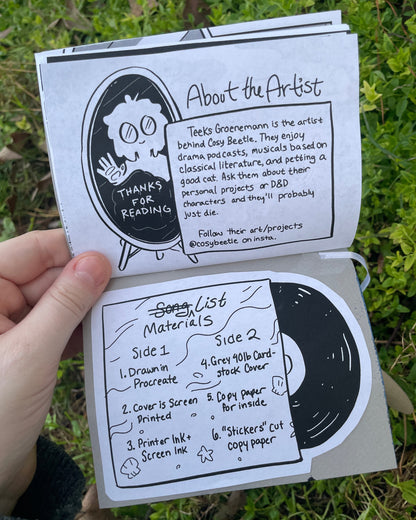 About the Artist
Teeks Groenemann is the artist
behind Cosy Beetle. They enjoy
drama podcasts, musicals based on
classical literature, and petting a
good cat. Ask them about their
personal projects or D&D
characters and they'll probably
just die.
Follow their art/projects
@cosybeetle on insta.
THANKS
FOR
READING
Song List
Materials
Side 1
1. Drawn in
Procreate
2. Cover is Screen
Printed
3. Printer Ink +
Screen Ink
Side 2
4. Grey 90lb Card-
stock Cover
5. Copy paper
for inside
6. "Stickers" Cut
copy paper